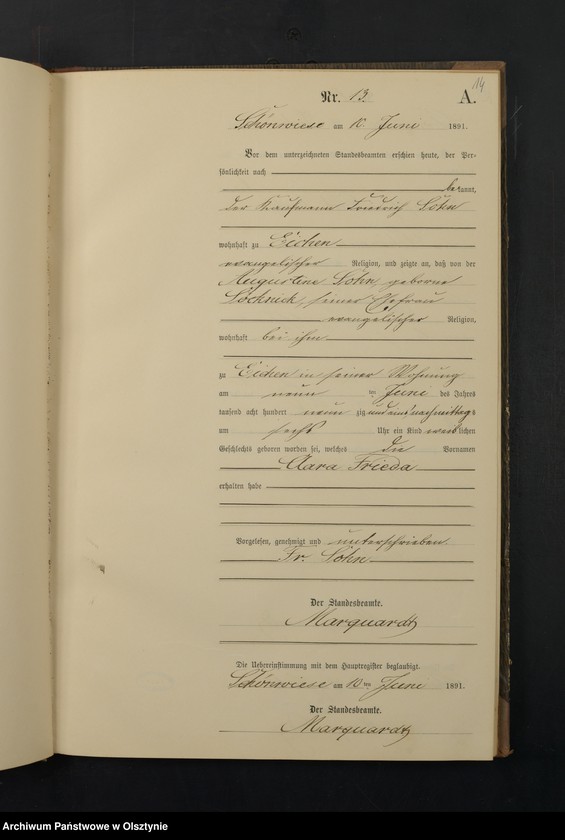 114
Nr. 13.
A.
Schönwiese am 10. Juni 1891.
Vor dem unterzeichneten Standesbeamten erschien heute, der Per-
sönlichkeit nach
bekannt,
der Kaufmann Friedrich Sohn
wohnhaft zu Eichen
evangelischer Religion, und zeigte an, daß von der
Augustine Sohn, geborne
seiner Ehefrau
evangelischer Religion,
wohnhaft bei ihm
zu Eichen in seiner Wohnung
am neun ten Juni des Jahres
tausend acht hundert neun zig und eins nachmittags
um sechs Uhr ein Kind weiblichen
Geschlechts geboren worden sei, welches die Vornamen
Clara Frieda
erhalten habe
Vorgelesen, genehmigt und unterschrieben
Fr. Sohn
Der Standesbeamte.
Marquardt
Die Uebereinstimmung mit dem Hauptregister beglaubigt.
Schönwiese am 10ten Juni 1891.
Der Standesbeamte.
Marquardt
Archiwum Państwowe w Olsztynie